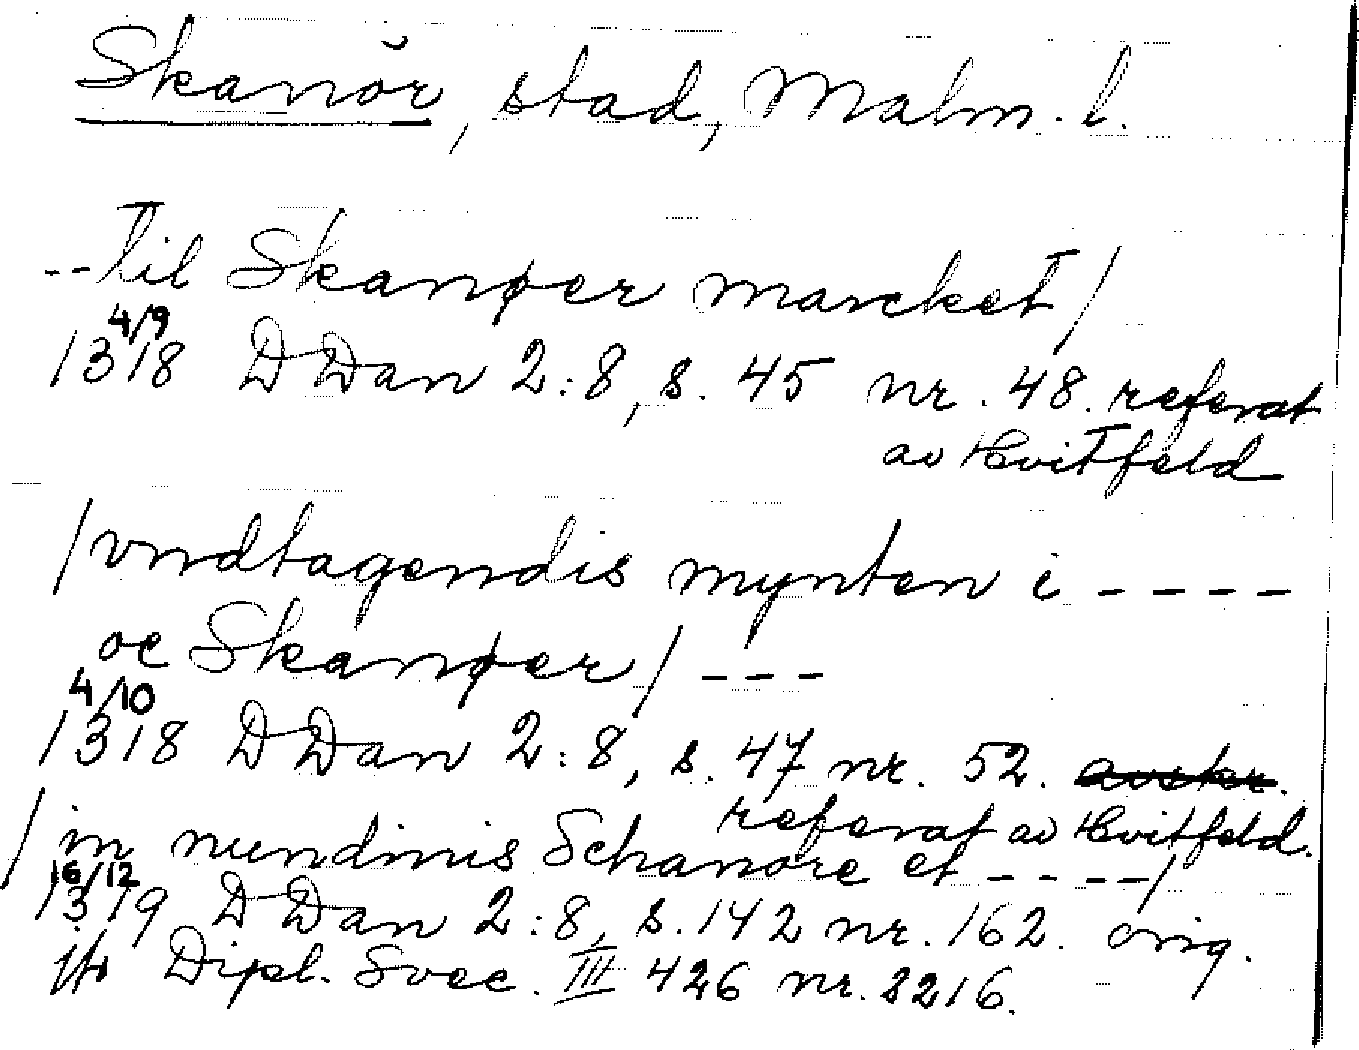 Skanör, stad, Malm. l.
--Til Skanøer marcket/
4/9
1318 DDan 2:8, s. 45 nr. 48. referat
av Hvitfeld
/vndtagendis mynten i ----
oc Skanøer/ ---
4/10
1318 DDan 2:8, s. 47 nr. 52. avskr.
referat av Hvitfeld.
/in nundinis Schanore et ----/
16/12
1319 DDan 2:8, s. 142 nr. 162. orig.
Dipl. Svec. III 426 nr. 2216.